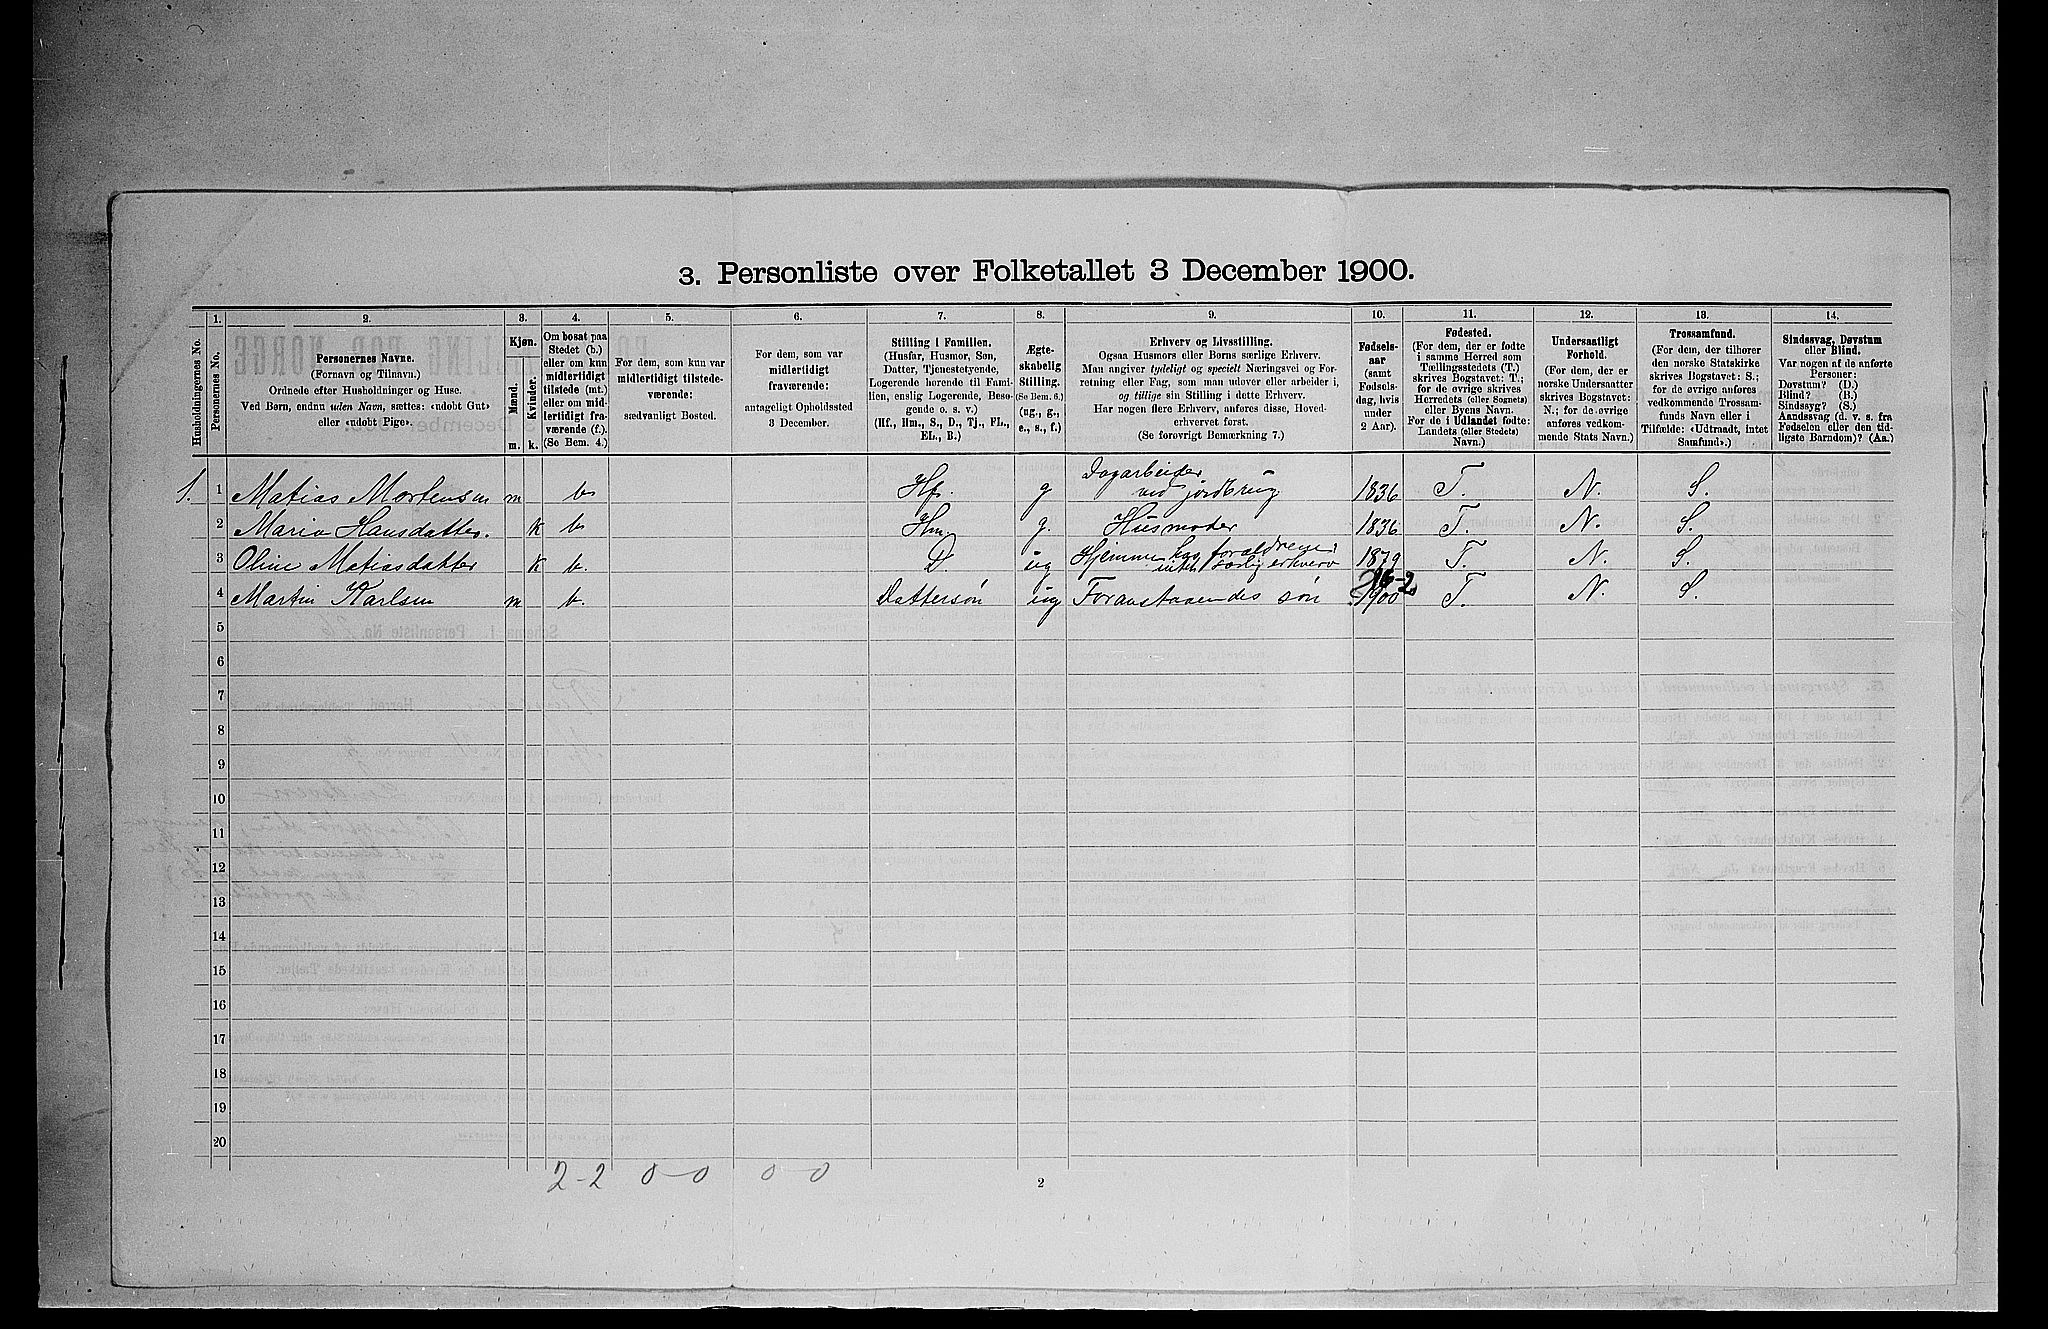 3. Personliste over Folketallet 3 December 1900.
Husholdningernes No.
1.
Personernes No.
2.
Personernes Navne.
(Fornavn og Tilnavn.)
Ordnede efter Husholdninger og Huse.
Ved Børn, endnu uden Navn, sættes: «udøbt Gut»
eller «udøbt Pige».
3.
Kjøn.
Mænd.
Kvinder.
m. k.
4.
Om bosat paa
Stedet (b.)
eller om kun
midlertidigt
tilstede (mt.)
eller om mid-
lertidigt fra-
værende (f.).
(Se Bem. 4.)
5.
For dem, som kun var
midlertidigt tilstede-
værende:
sædvanligt Bosted.
6.
For dem, som var
midlertidigt
fraværende:
antageligt Opholdssted
3 December.
7.
Stilling i Familien.
(Husfar, Husmor, Søn,
Datter, Tjenestetyende,
Logerende hørende til Fami-
lien, enslig Logerende, Besø-
gende o. s. v.)
(Hf., Hm., S., D., Tj., FL.,
EL., B.)
8.
Ægte-
skabelig
Stilling.
(Se Bem. 6.)
(ug., g.,
e., s., f.)
9.
Erhverv og Livsstilling.
Ogsaa Husmors eller Børns særlige Erhverv.
Man angiver tydeligt og specielt Næringsvei og For-
retning eller Fag, som man udover eller arbeider i,
og tillige sin Stilling i dette Erhverv.
Har nogen flere Erhverv, anføres disse, Hoved-
erhvervet først.
(Se forøvrigt Bemærkning 7.)
10.
Fødsels-
aar
(samt
Fødsels-
dag, hvis
under
2 Aar).
11.
Fødested.
(For dem, der er fødte
i samme Herred som
Tællingsstedets (T.)
skrives Bogstavet: T.;
for de øvrige skrives
Herredets (eller Sognets)
eller Byens Navn.
For de i Udlandet fødte:
Landets (eller Stedets)
Navn.)
12.
Undersaatligt
Forhold.
(For dem, der er
norske Undersaatter
skrives Bogstavet:
N.; for de øvrige
anføres vedkom-
mende Stats Navn.)
13.
Trossamfund.
(For dem, der tilhører
den norske Statskirke
skrives Bogstavet: S.;
for de øvrige anføres
vedkommende Trossam-
funds Navn eller i
Tilfælde: «Udtraadt, intet
Samfund».)
14.
Sindssvag, Døvstum
eller Blind.
Var nogen af de anførte
Personer:
Døvstum? (D.)
Blind? (B.)
Sindssyg? (S.)
Aandssvag (d. v. s. fra
Fødselen eller den tid-
ligste Barndom)? (Aa.)
1. 1 Matias Mortensen m b. Hf. g Dagarbeider
ved jordbrug 1836 T. N. S.
2 Maria Hansdatter. k b. Hm. g. Husmoder 1836 T. N. S.
3 Oline Matiasdatter k b. D. ug Hjemme hos forældrene,
intet særlig erhverv 1879 T. N. S.
4 Martin Karlsen m b. Dattersøn ug Foranstaaendes søn 1900 T. N. S.
5
6
7
8
9
10
11
12
13
14
15
16
17
18
19
20
2-2 0-0 0-0
2